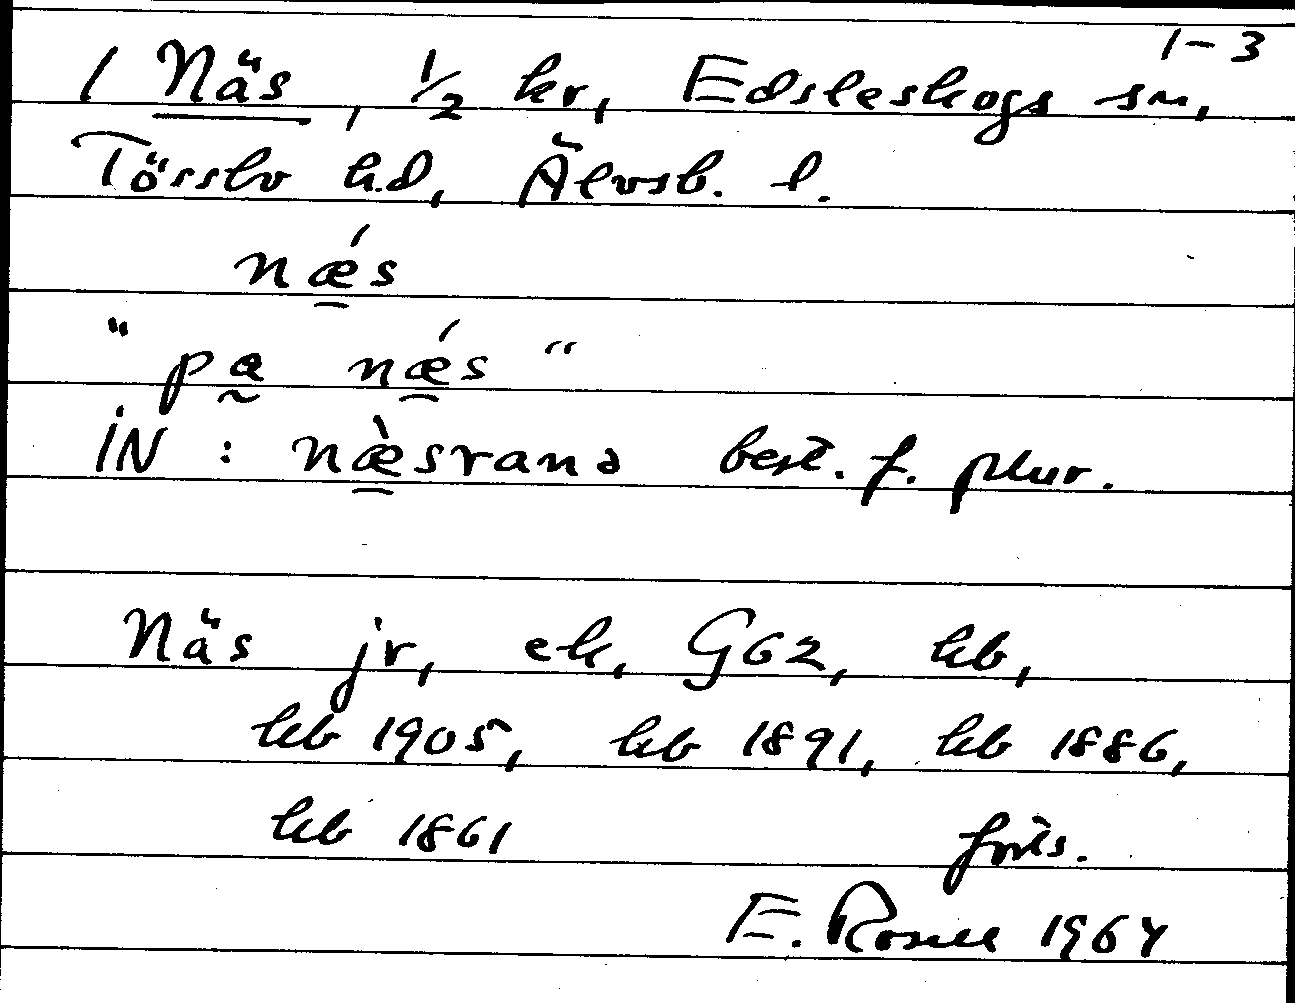 1-3
1 Näs, 1/2 kr, Edsleskogs sn,
Tösslo hd, Älvsb. l.
næ̀s
"pa nǽs"
IN: næ̀srana best. f. plur.
Näs jr, ek, G62, kb,
hb 1905, hb 1891, hb 1886,
hb 1861 forts.
E. Rosell 1964